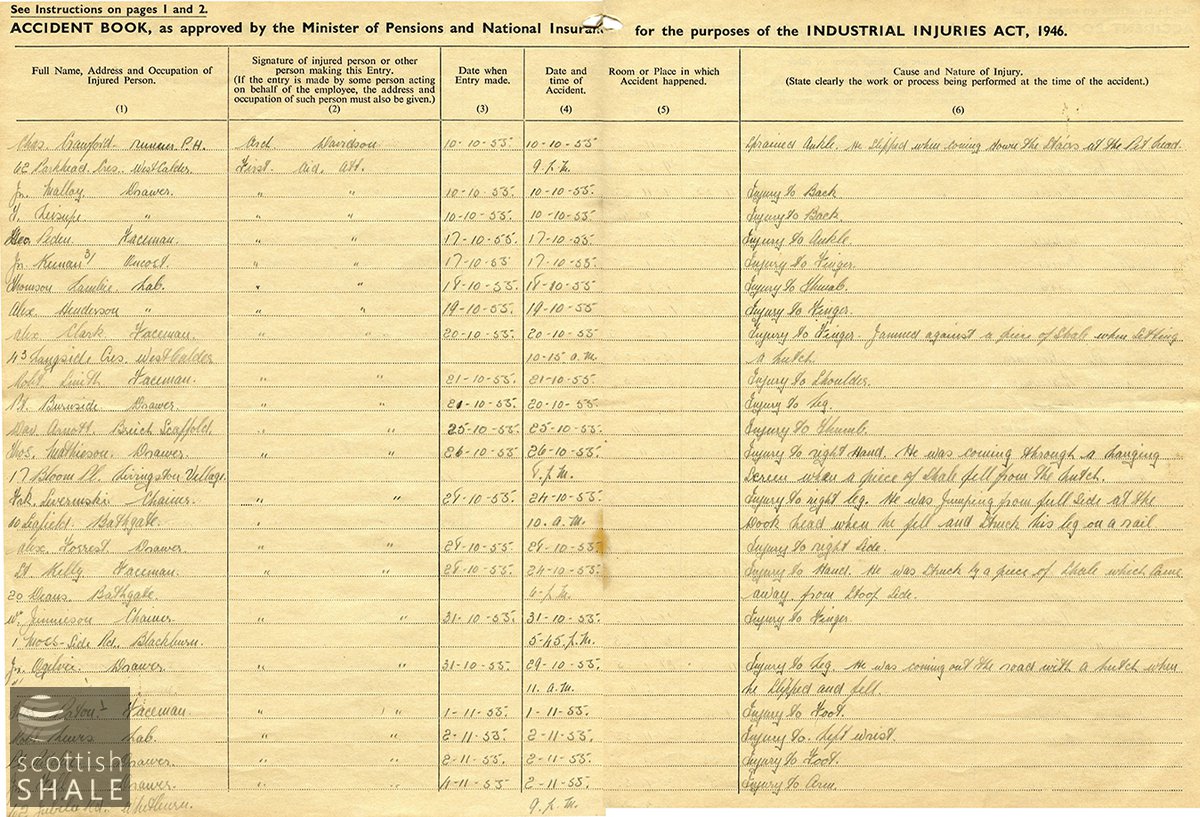 See Instructions on pages 1 and 2.
ACCIDENT BOOK, as approved by the Minister of Pensions and National Insurance for the purposes of the INDUSTRIAL INJURIES ACT, 1946.
Full Name, Address and Occupation of Injured Person. (1)
Signature of injured person or other person making this Entry. (If the entry is made by some person acting on behalf of the employee, the address and occupation of such person must also be given.) (2)
Date when Entry made. (3)
Date and time of Accident. (4)
Room or Place in which Accident happened. (5)
Cause and Nature of Injury. (State clearly the work or process being performed at the time of the accident.) (6)
Chas. Crawford. Runner P.H. Arch. Davidson 10-10-55. 10-10-55. Sprained Ankle. He slipped when coming down the Stairs at the Pit head.
62 Parkhead Cres. West Calder. First Aid Att. 9 p.m.
Jn. Malloy Drawer. " " 10-10-55. 10-10-55. Injury to Back
" " " 10-10-55. 10-10-55. Injury to Back.
Geo. Peden Faceman. " " 17-10-55. 17-10-55. Injury to Ankle.
Jn. Keenan Oncost. " " 17-10-55. 17-10-55. Injury to Finger.
Thomson Lambie Lab. " " 18-10-55. 18-10-55. Injury to Thumb.
Alex. Henderson " " " 19-10-55. 19-10-55. Injury to Finger.
Alex Clark Faceman. " " 20-10-55. 20-10-55. Injury to Finger Jammed against a piece of Shale when Setting
43 Langside Cres. West Calder 10-15 a.m. a hutch.
Robt. Smith Faceman. " " 21-10-55. 21-10-55. Injury to Shoulder.
Burnside Drawer. " " 21-10-55. 20-10-55. Injury to Leg.
Dav. Arnott. Breich Scaffold. " " 25-10-55. 25-10-55. Injury to Thumb.
Thos. Mathieson. Drawer. " " 26-10-55. 26-10-55. Injury to right Hand. He was coming through a hanging
17 Bloom Pl. Livingston Village. 8 p.m. Screen when a piece of Shale fell from the hutch.
Chainer. " " 28-10-55. 24-10-55. Injury to right leg. He was Jumping from full Side at the
Bathgate. 10. a.m. Dook head when he fell and Struck his leg on a rail
Alex. Forrest Drawer " " 28-10-55. 28-10-55. Injury to right Side.
Kelly Faceman. " " 28-10-55. 24-10-55. Injury to Hand. He was Struck by a piece of Shale which Came
20 Deans. Bathgate. p.m. away from Stoop Side.
Wm Jamieson Chainer. " " 31-10-55. 31-10-55. Injury to Finger
1 Moss-Side Rd. Blackburn. 5-45 p.m.
Jn. Ogilvie. Drawer. " " 31-10-55. 29-10-55. Injury to Leg. He was coming out the road with a hutch when
11. a.m. he Slipped and fell.
Faceman. " " 1-11-55. 1-11-55. Injury to Foot.
Lewis Lab. " " 2-11-55. 2-11-55. Injury to Left wrist.
Drawer. " " 2-11-55. 2-11-55. Injury to Foot.
Drawer. " " 4-11-55. 4-11-55. Injury to Arm.
Whitburn. 9. p.m.
scottish
SHALE